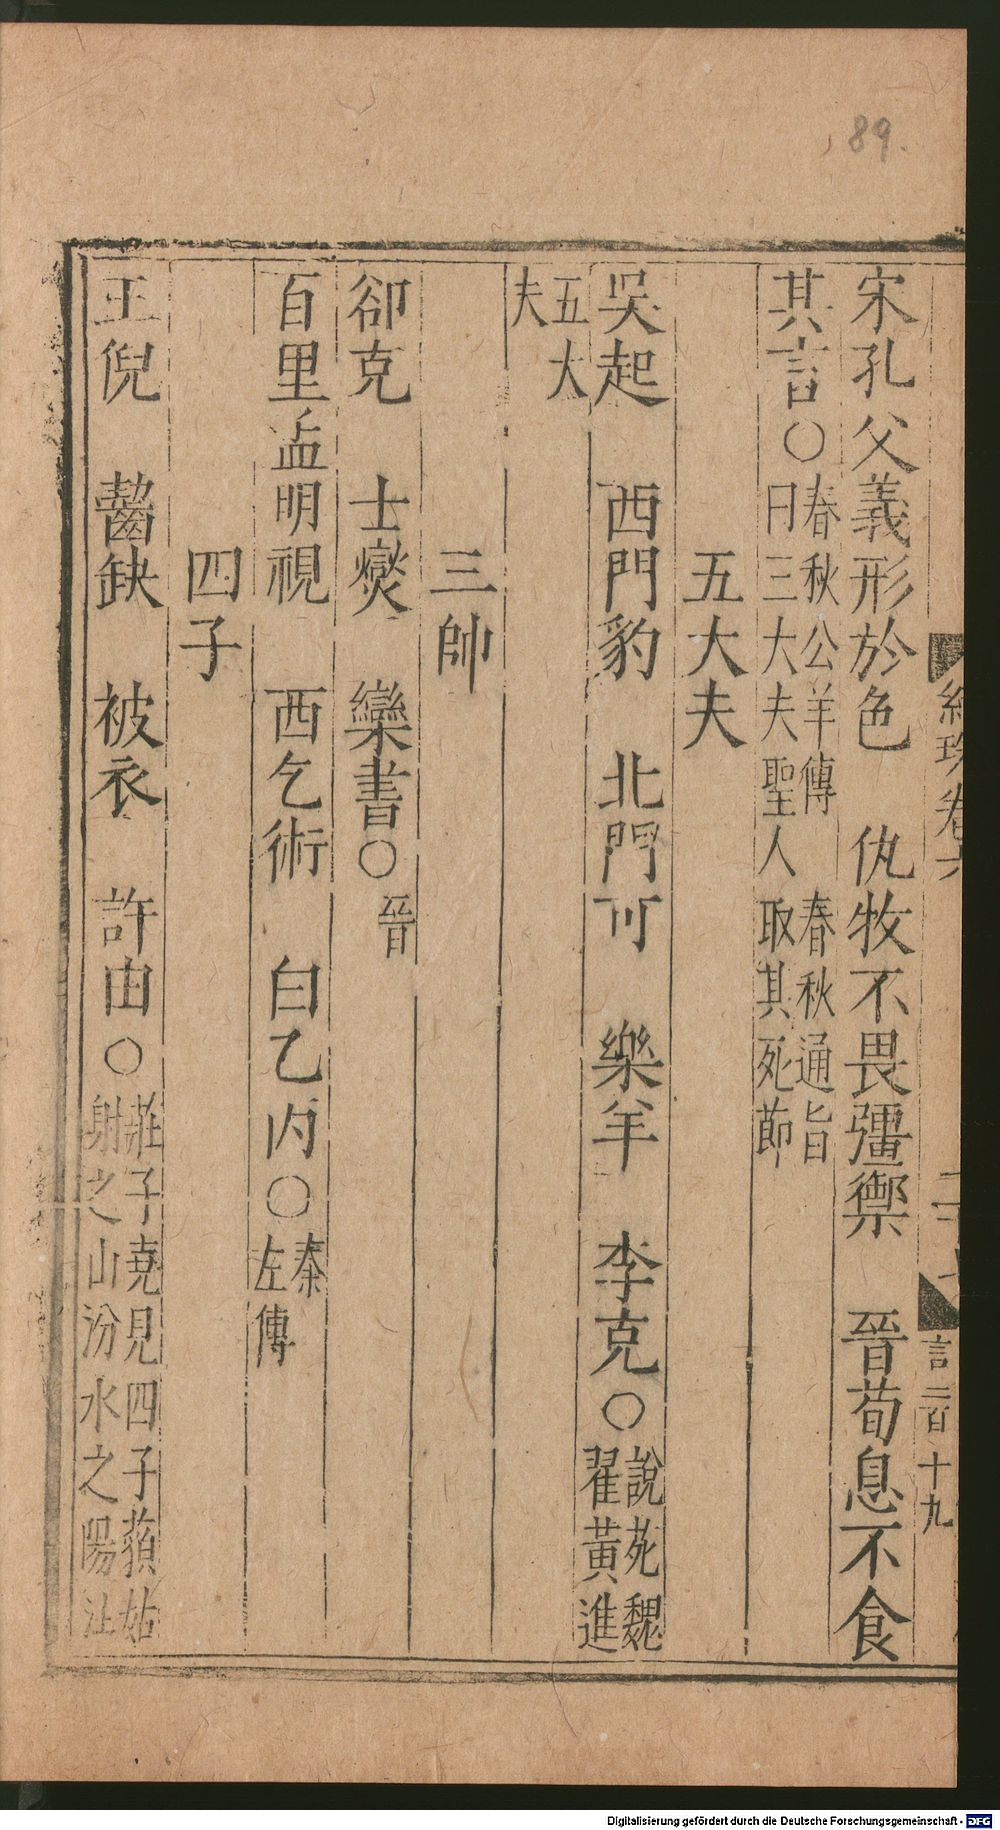 89.
宋孔父義形於色　仇牧不畏彊禦　晉荀息不食
其言○春秋公羊傳　春秋通旨
曰三大夫聖人取其死節
五大夫
吳起　西門豹　北門可　樂羊　李克○說苑魏
翟黃進
五大
夫
三帥
郤克　士燮　欒書○晉
百里孟明視　西乞術　白乙丙○秦
左傳
四子
王倪　齧缺　被衣　許由○莊子堯見四子藐姑
射之山汾水之陽注
卷六
言二百十九
Digitalisierung gefördert durch die Deutsche Forschungsgemeinschaft - DFG